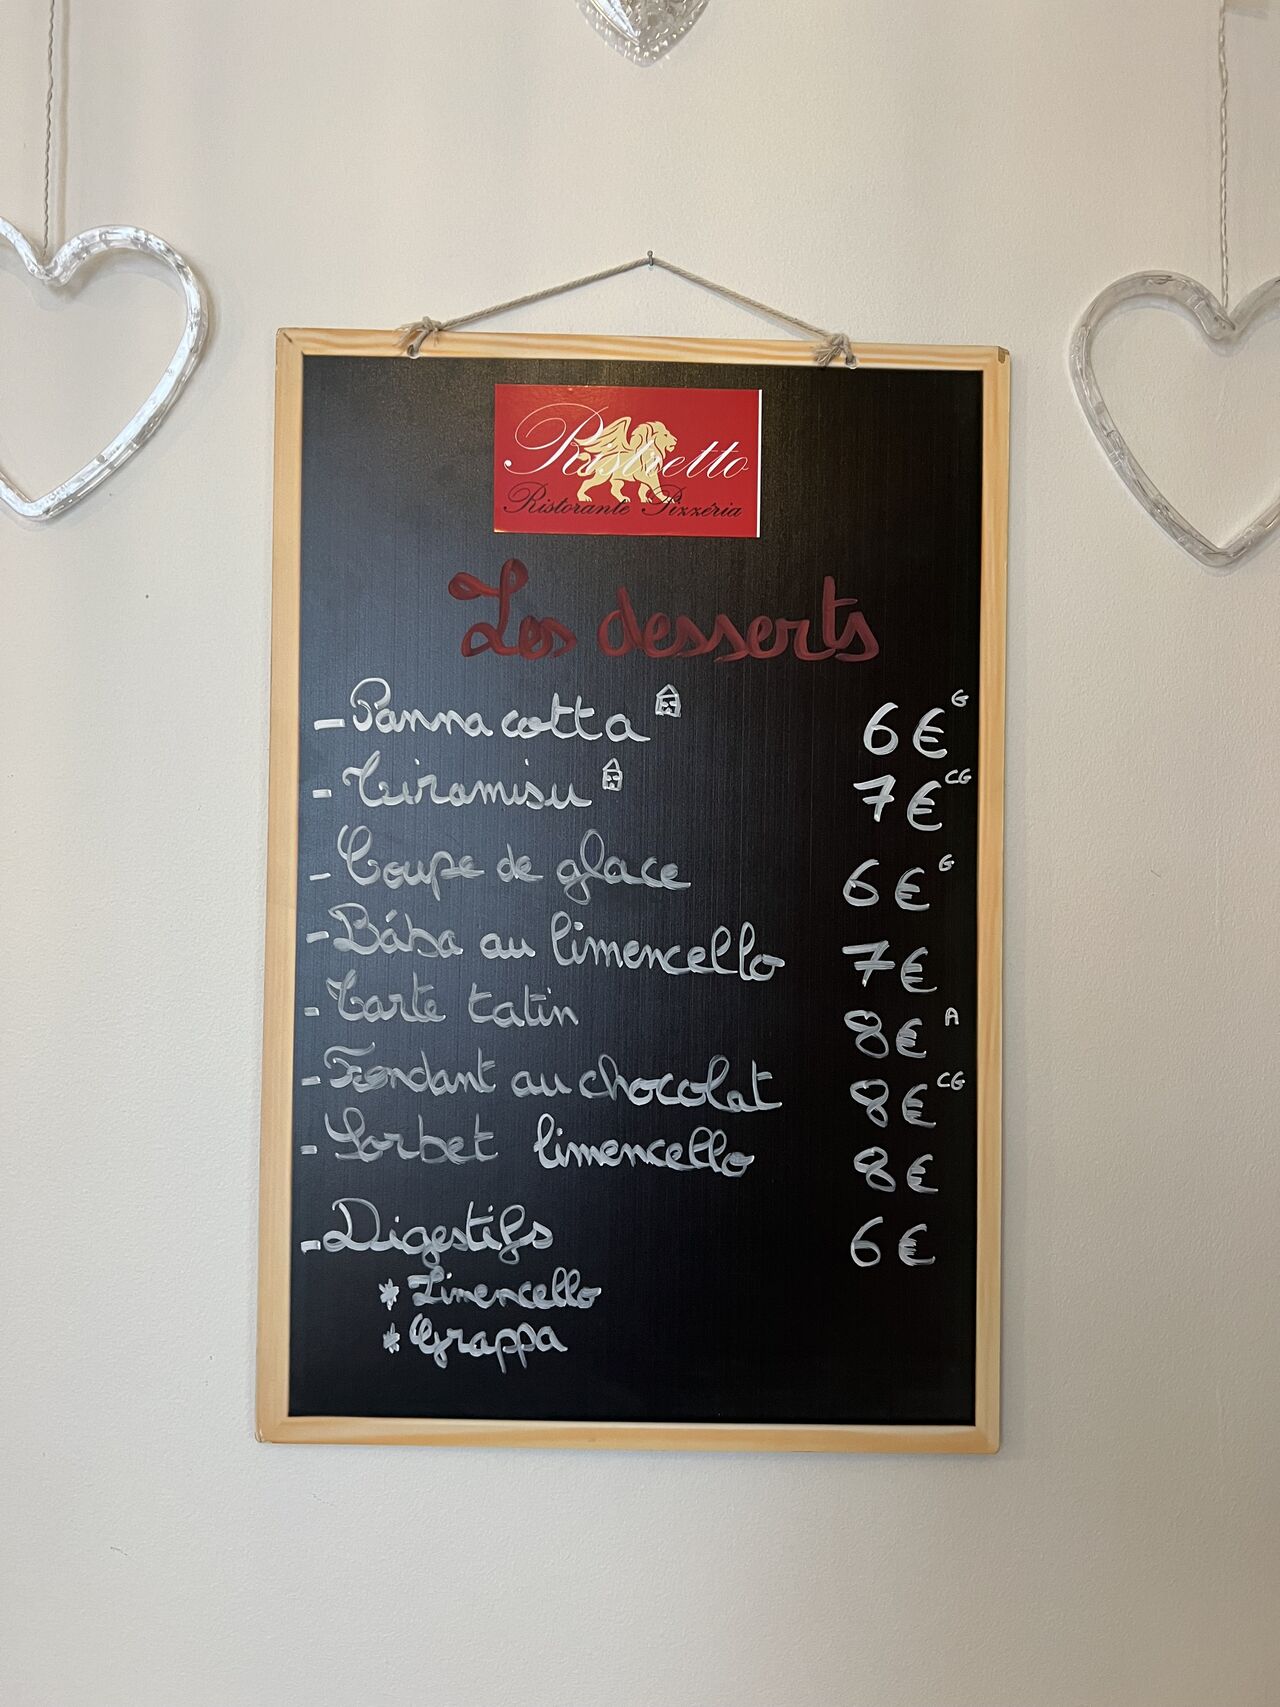 Ristretto
Ristorante Pizzéria
Les desserts
- Panna cotta 6 € G
- Tiramisu 7 € CG
- Coupe de glace 6 € G
- Bába au limencello 7 €
- Tarte tatin 8 € A
- Fondant au chocolat 8 € CG
- Sorbet limencello 8 €
- Digestifs 6 €
* Limencello
* Grappa